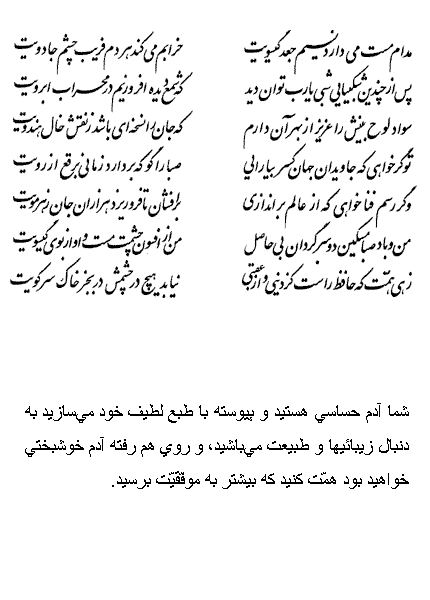 مدام مست می دارد نسیم جعد گیسویت خرابم می کند هر دم فریب چشم جادویت
پس از چندین شکیبایی شبی یارب توان دید که شمع دیده افروزیم در محراب ابرویت
سواد لوح بینش را عزیز از بهر آن دارم که جان را نسخه ای باشد ز نقش خال هندویت
تو گر خواهی که جاویدان جهان یکسر بیارائی صبا را گو که بردارد زمانی برقع از رویت
وگر رسم فنا خواهی که از عالم براندازی برافشان تا فرو ریزد هزاران جان ز هر مویت
من و باد صبا مسکین دو سرگردان بی حاصل من از افسون چشمت مست و او از بوی گیسویت
زهی همت که حافظ راست کز دنیی و از عقبی نیاید هیچ در چشمش بجز خاک سر کویت
شما آدم حساسي هستيد و پيوسته با طبع لطيف خود مي‌سازيد به
دنبال زيبائيها و طبيعت مي‌باشيد، و روي هم رفته آدم خوشبختي
خواهيد بود همّت كنيد كه بيشتر به موفّقيّت برسيد.